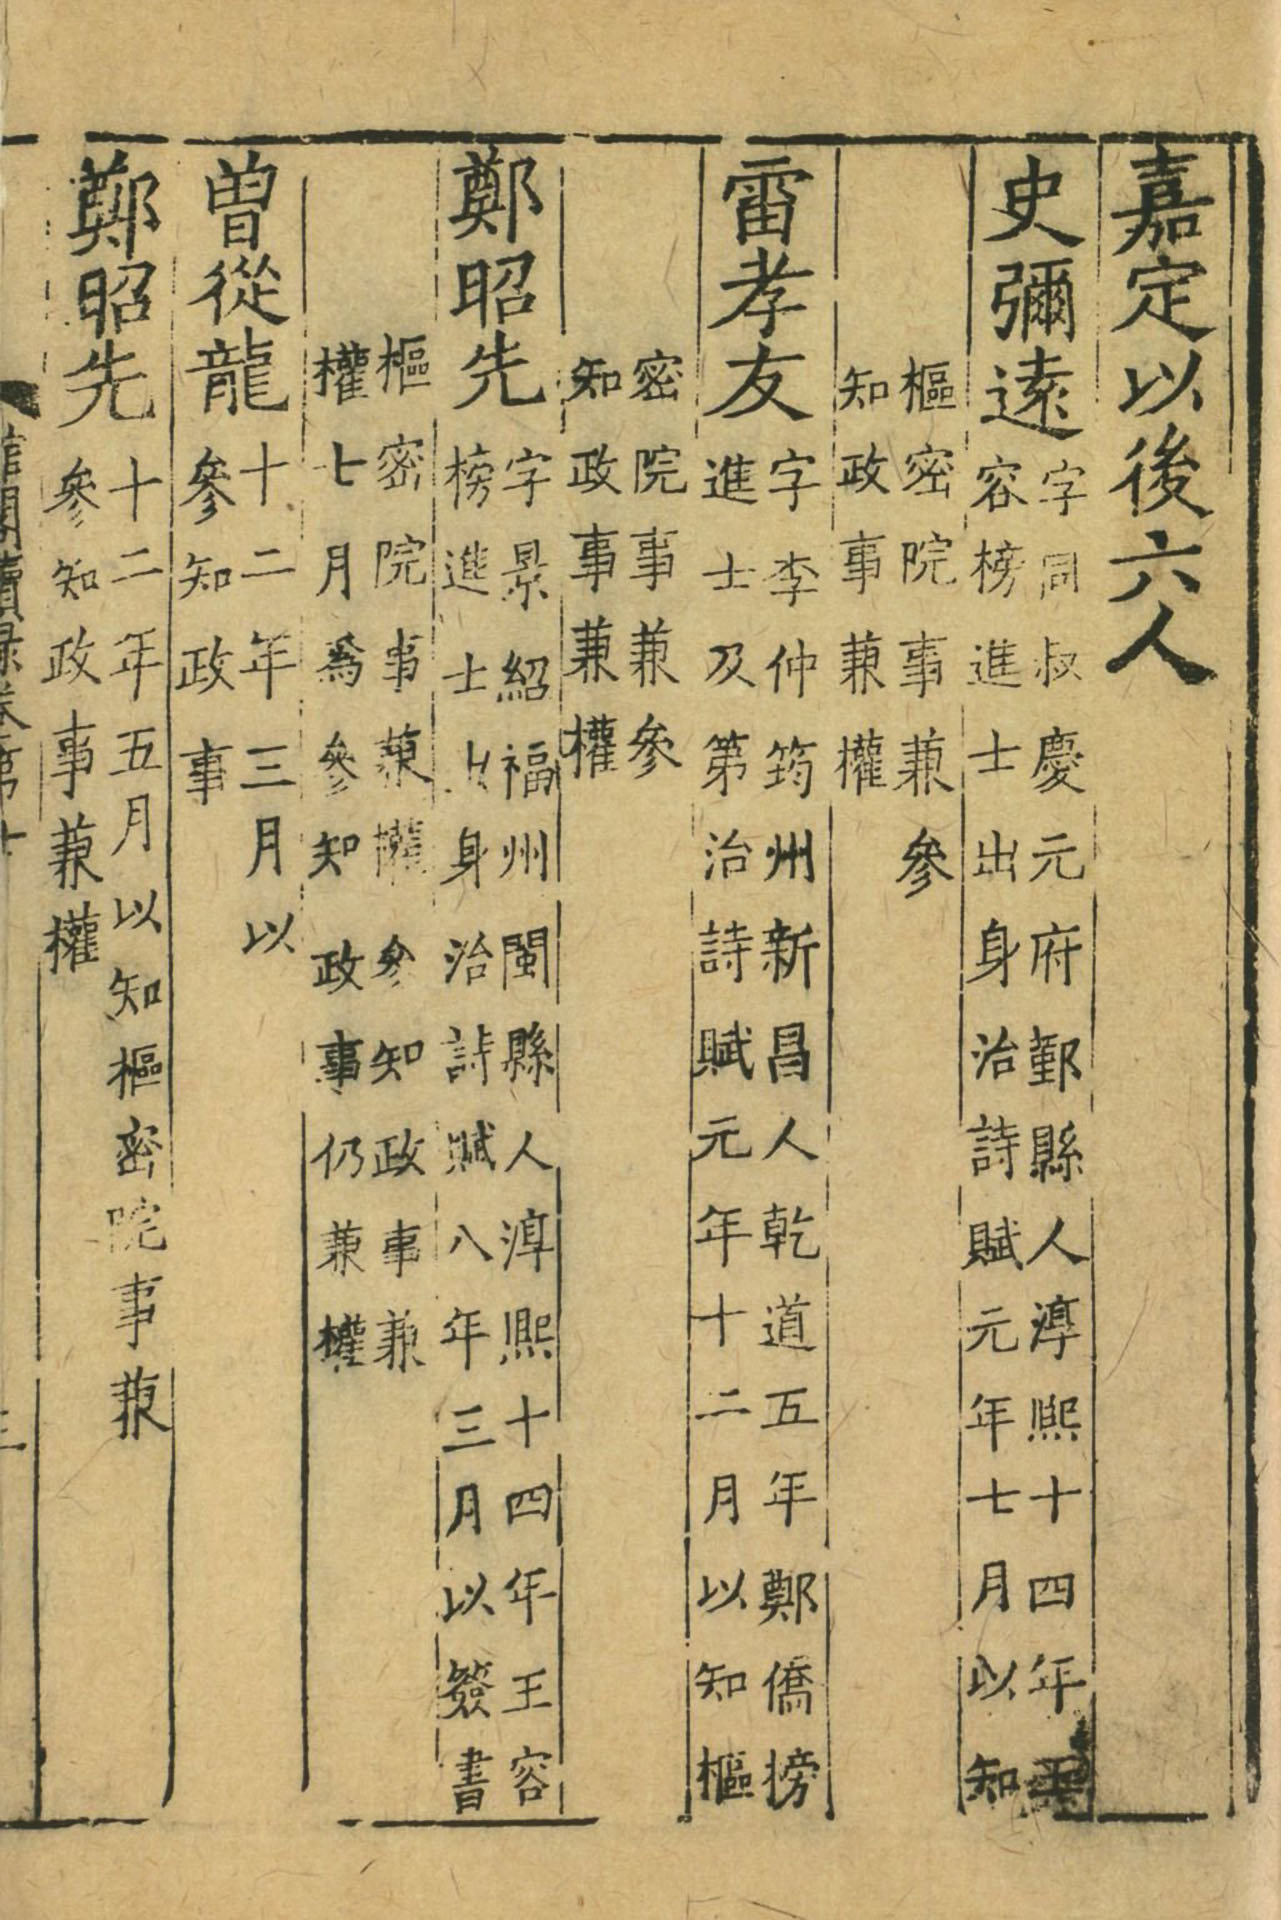 嘉定以後六人
史彌遠字同叔慶元府鄞縣人淳熙十四年王
容榜進士出身治詩賦元年七月以知
樞密院事兼參
知政事兼權
雷孝友字李仲筠州新昌人乾道五年鄭僑搒
進士及第治詩賦元年十二月以知樞
密院事兼參
知政事兼權
鄭昭先字景紹福州閩縣人淳熙十四年王容
榜進士出身治詩賦八年三月以簽書
樞密院事兼權參知政事兼
權七月爲參知政事仍兼權
曾從龍十二年三月以
參知政事
鄭昭先十二年五月以知樞密院事兼
參知政事兼權
館閣續録卷第七
三